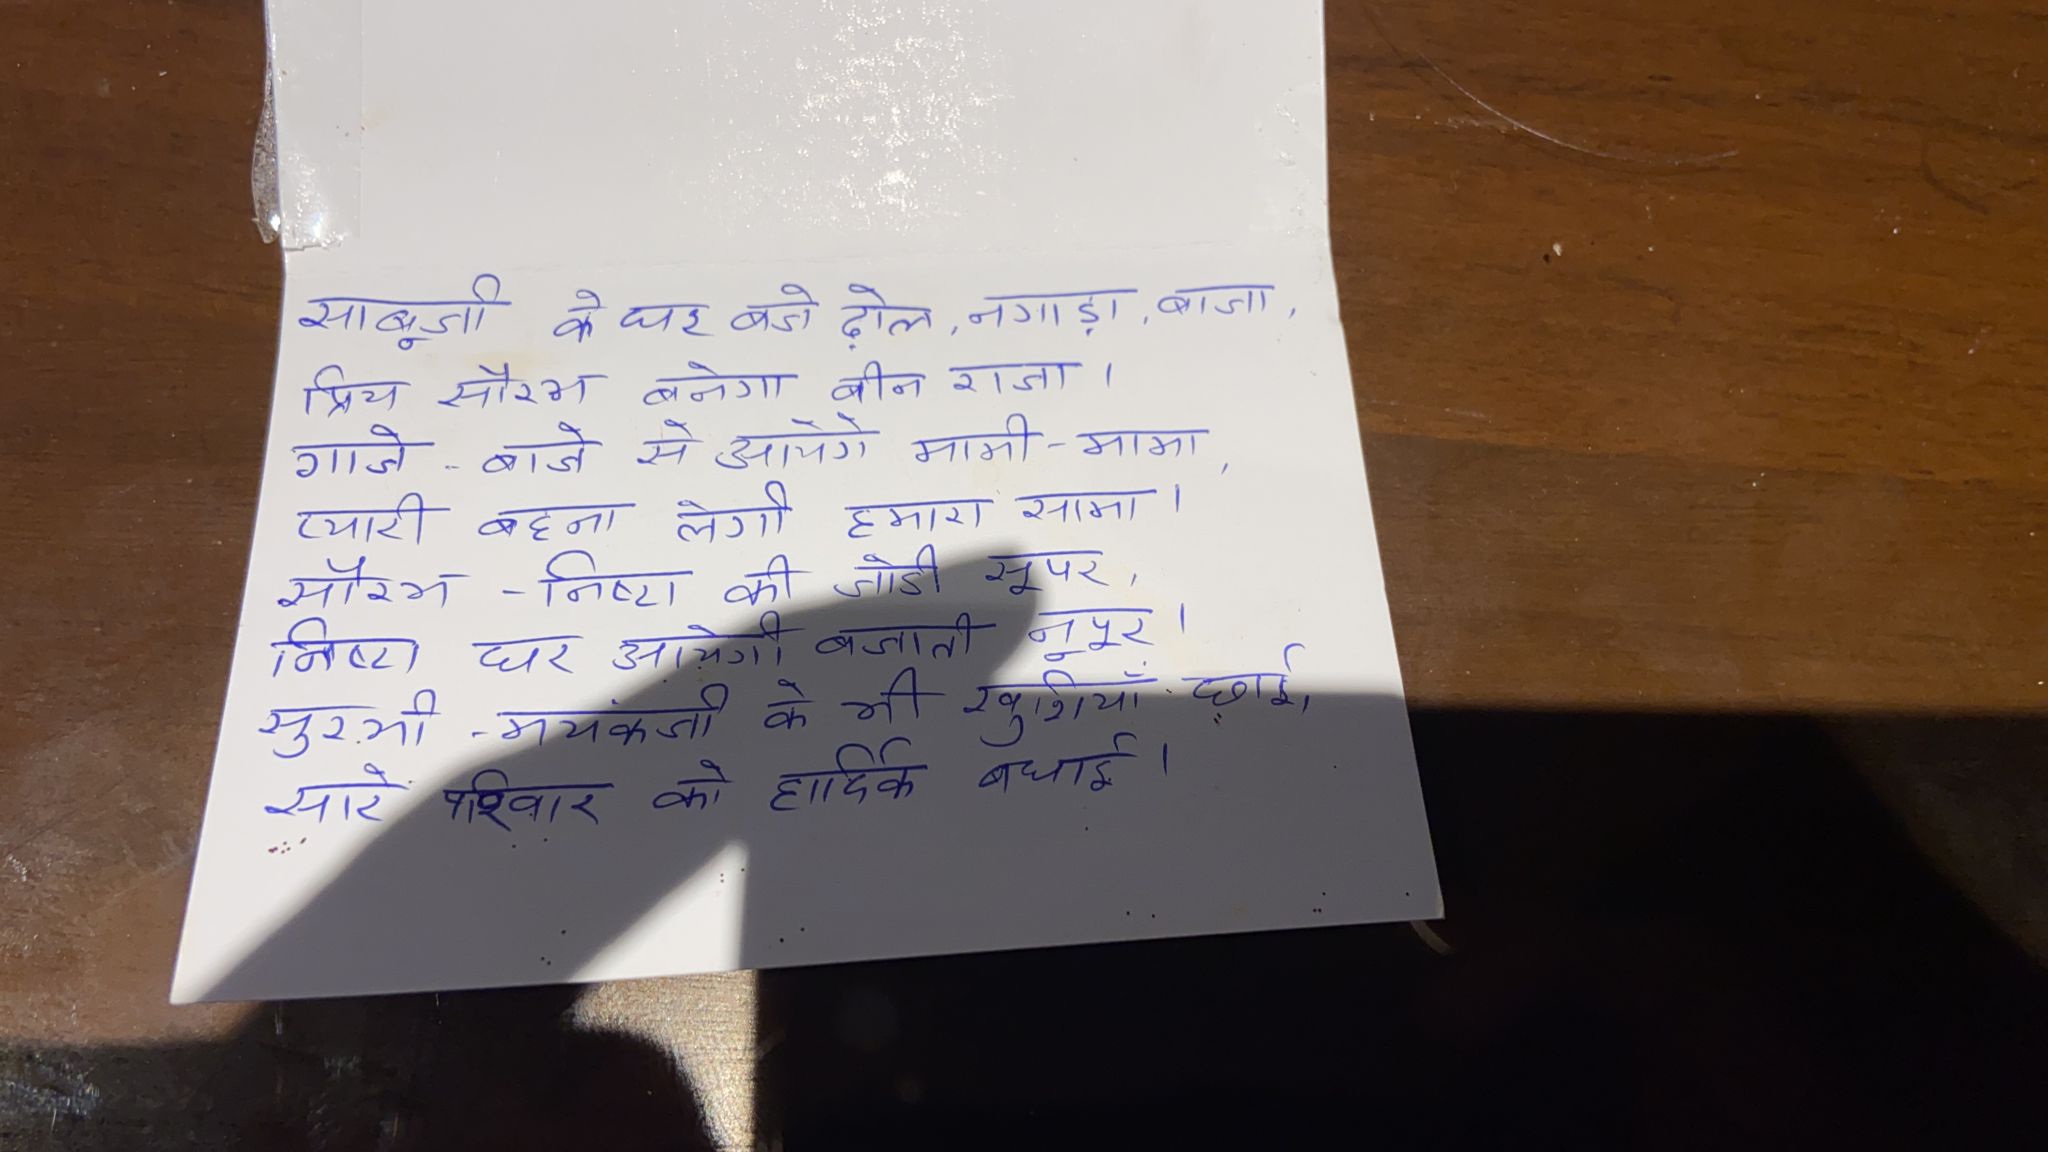 साबूजी के घर बजे ढ़ोल, नगाड़ा, बाजा,
प्रिय सौरभ बनेगा बीन राजा।
गाजे - बाजे से आयेंगे मामी - मामा,
प्यारी बहना लेगी हमारा सामा।
सौरभ - निष्टा की जोडी सूपर,
निष्टा घर आयेगी बजाती नूपूर।
सुरभी - मयंकजी के भी खुशियाँ छाई,
सारे परिवार को हार्दिक बधाई।